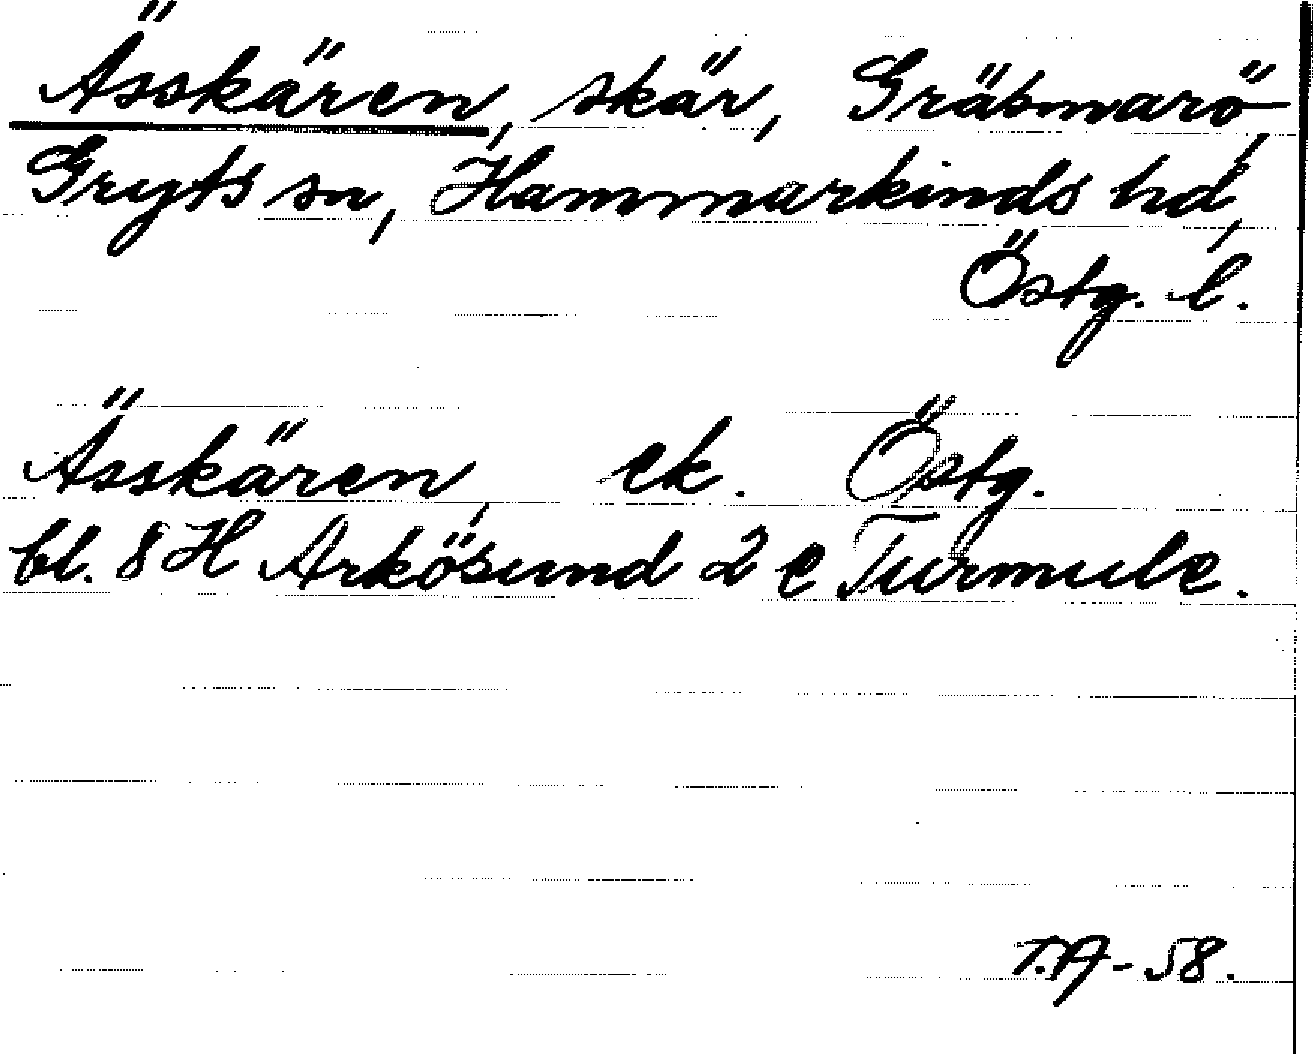 Ässkären, skär, Gräsmarö,
Gryts sn, Hammarkinds hd,
Östg. l.
Ässkären, ek. Östg.
bl. 8 H Arkösund 2 e Turmule.
T.A - 58.